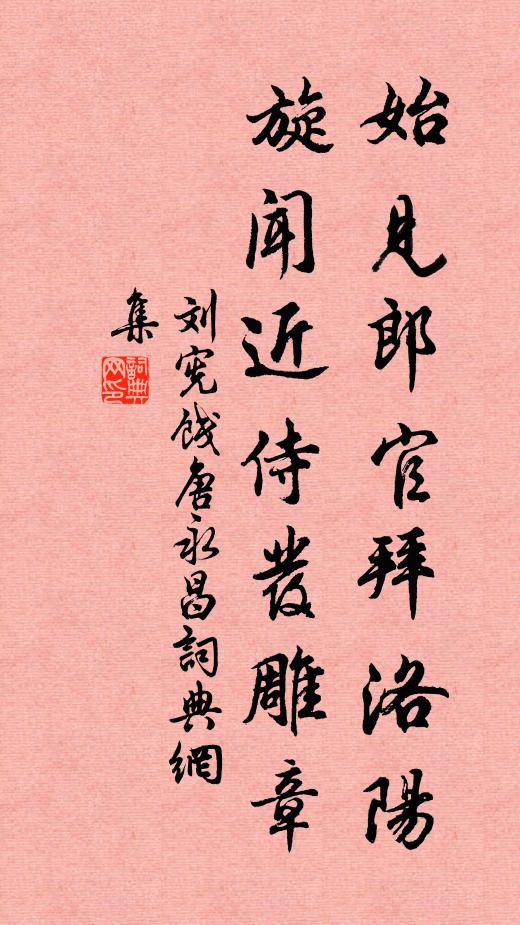 始見郎官拜洛陽
旋聞近侍發雕章
刘宪餞唐永昌詞典網
集
詞典網印